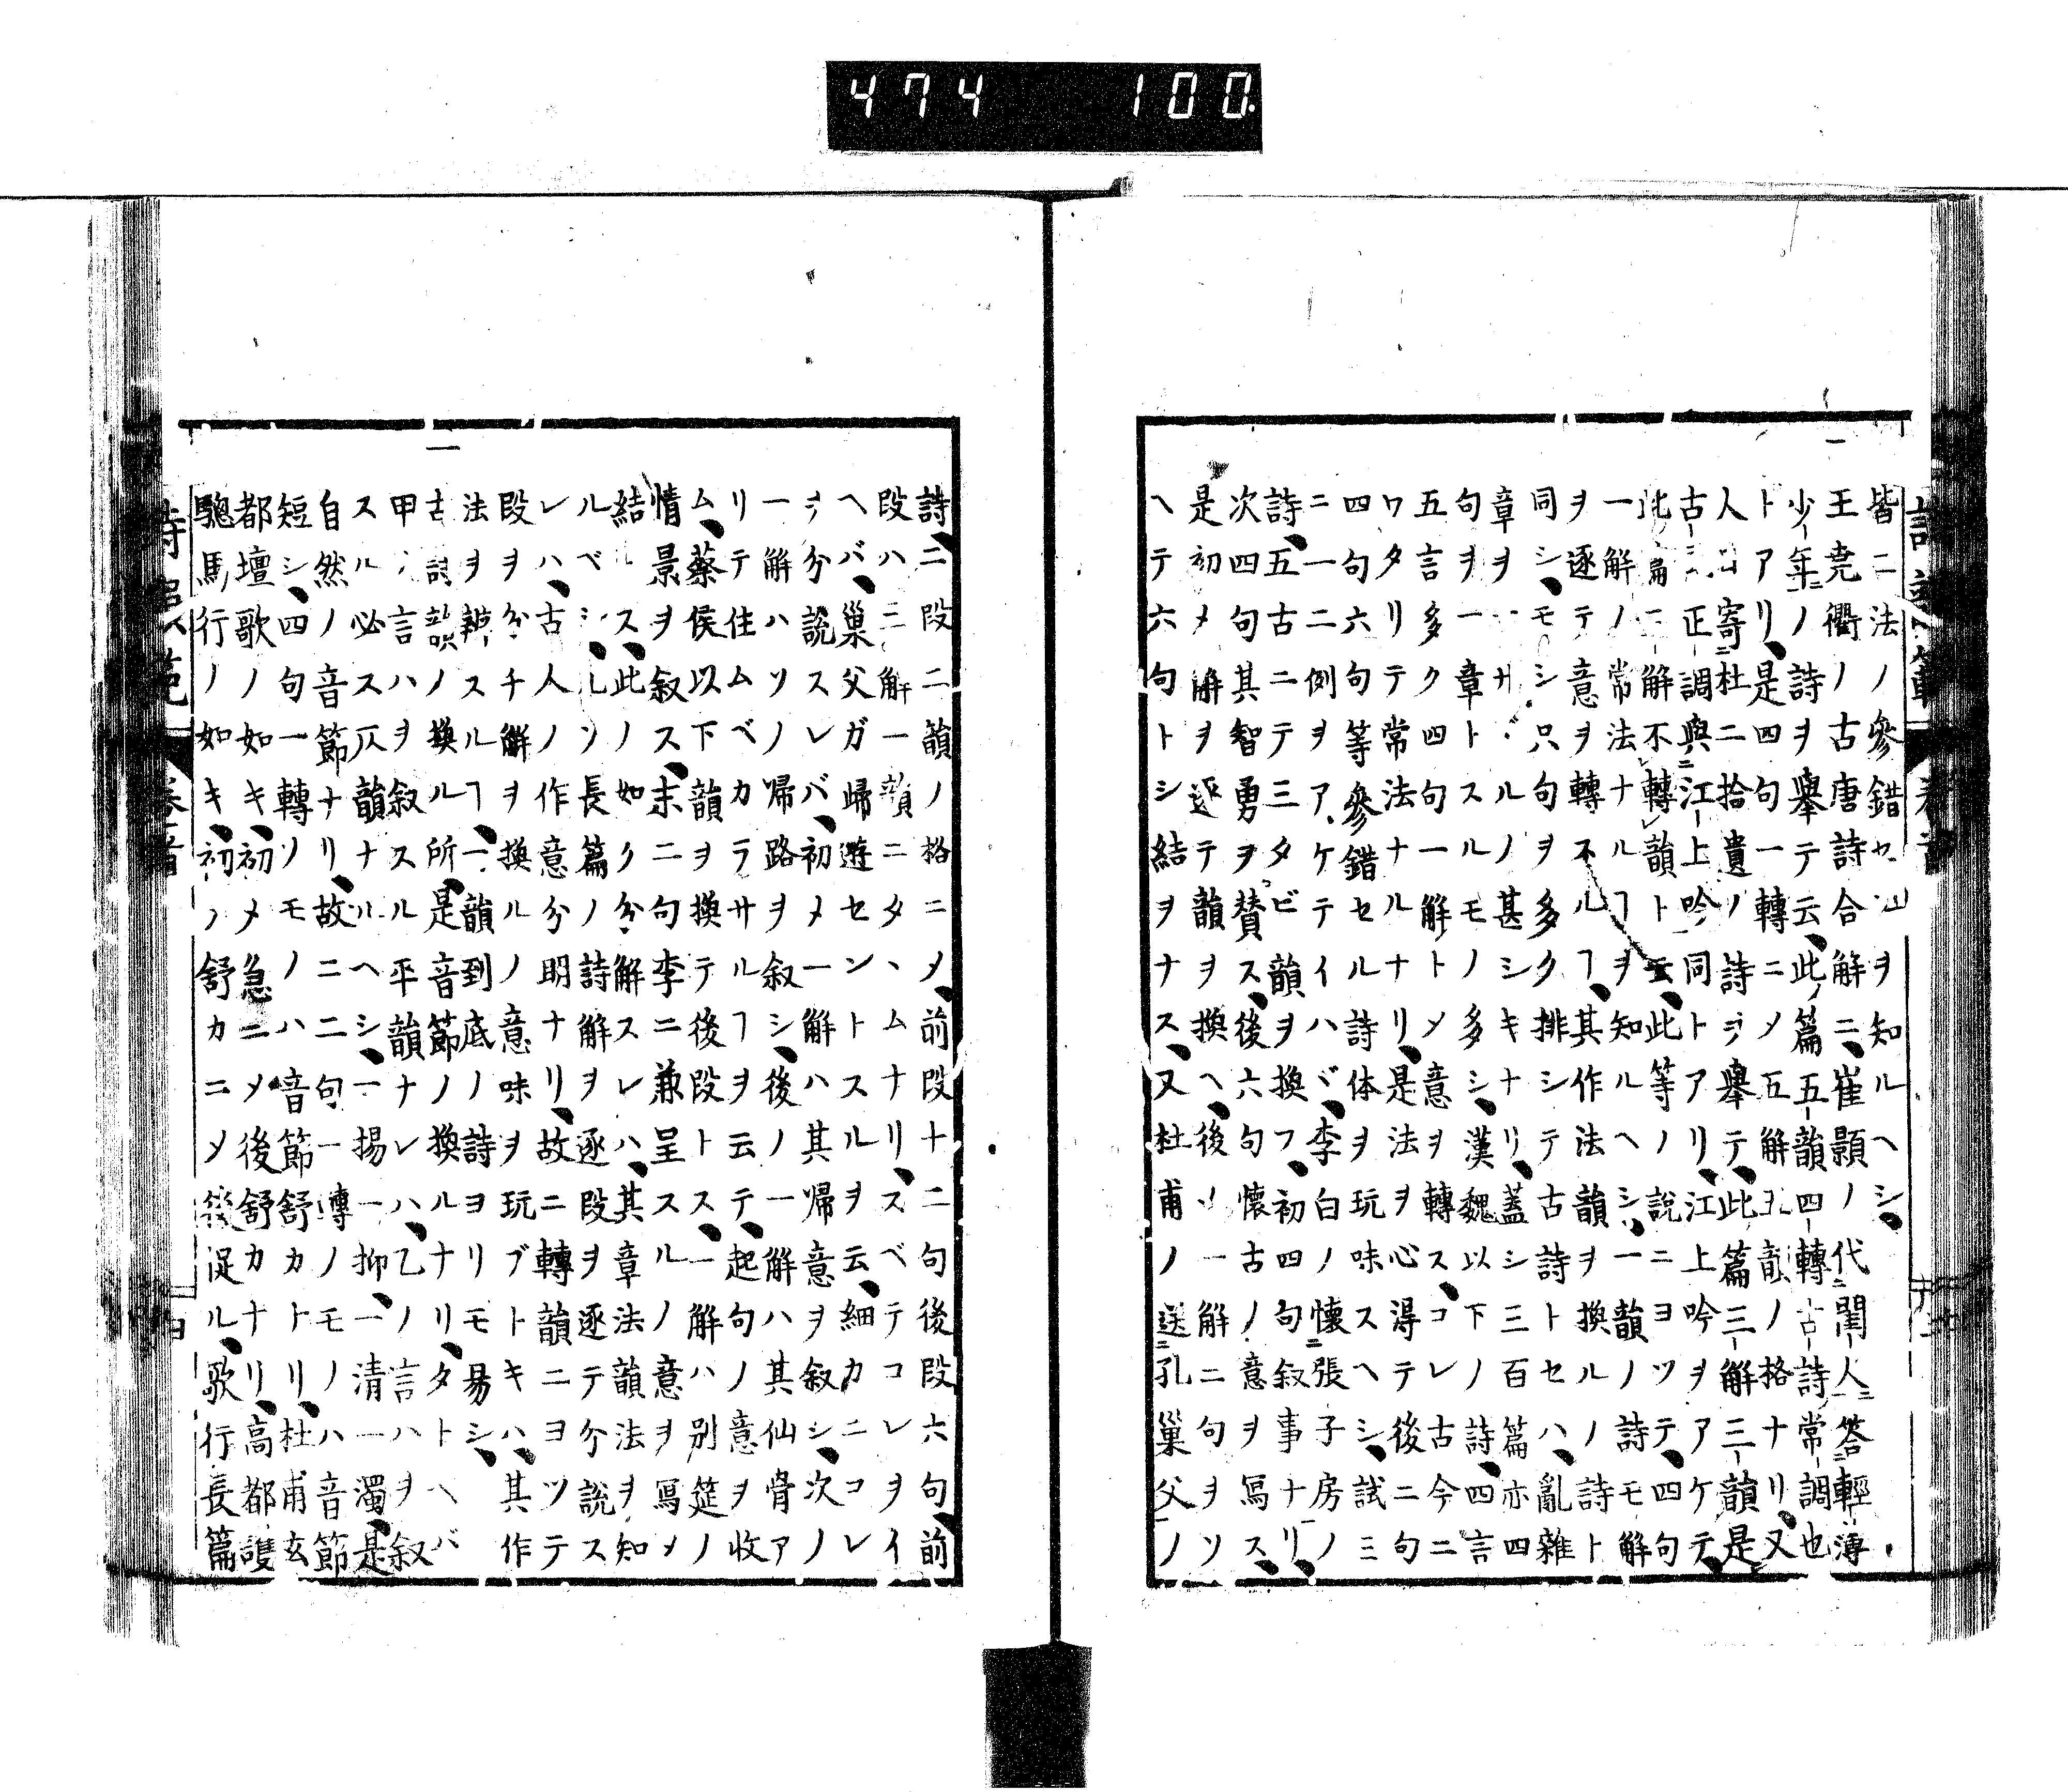 474 100.
皆ニ法ノ參錯セルヲ知ルヘシ、
王堯衢ノ古唐詩合解ニ、崔顥ノ代閨人答輕薄
少年ノ詩ヲ舉テ云、此篇五韻四轉古詩常調也
トアリ、是四句一轉ニメ五解五韻ノ格ナリ、又
人日寄杜二拾遺ノ詩ヲ舉テ、此篇三解三韻是
古正調與江上吟同トアリ、江上吟ヲアケテ、
此篇二解不轉韻ト云、此等ノ說ニヨツテ四句
一解ノ常法ナルヿヲ知ルヘシ、一韻ノ詩モ解
ヲ逐テ意ヲ轉スルヿ、其作法韻ヲ換ルノ詩ト
同シ、モシ只句ヲ多ク排シテ古詩トセハ、亂雜
章ヲナサルノ甚シキナリ、蓋シ三百篇亦四
句ヲ一章トスルモノ多シ、漢魏以下ノ詩、四言
五言多ク四句一解トメ意ヲ轉ス、コレ古今ニ
ワタリテ常法ナルナリ、是法ヲ心得テ後ニ句
四句六句等參錯セル詩体ヲ玩味スヘシ、試ニ
ニ一二例ヲアケテイハヾ、李白ノ懷張子房ノ
詩、五古ニテ三タビ韻ヲ換フ、初四句叙事ナリ、
次四句其智勇ヲ賛ス、後六句懷古ノ意ヲ寫ス、
是初メ解ヲ逐テ韻ヲ換ヘ、後ハ一解ニ句ヲソ
ヘテ六句トシ結ヲナス、又杜甫ノ送孔巢父ノ
詩、二段二韻ノ格ニメ、前段十二句後段六句、前
段ハ二解一韻ニタヽムナリ、スベテコレヲイ
ヘバ、巢父ガ歸遊セントスルヲ云、細カニコレ
ヲ分說スレバ、初メ一解ハ其歸意ヲ叙シ、次ノ
一解ハソノ歸路ヲ叙シ、後ノ一解ハ其仙骨ア
リテ住ムベカラサルヿヲ云テ、起句ノ意ヲ收
ム、蔡侯以下韻ヲ換テ後段トス、一解ハ別筵ノ
情景ヲ叙ス、末二句李ニ兼呈スルノ意ヲ寫メ
結ルス、此ノ如ク分解スレハ、其章法韻法ヲ知
ルベシ、凡ソ長篇ノ詩解ヲ逐段ヲ逐テ分說ス
レハ、古人ノ作意分明ナリ、故ニ轉韻ニヨツテ
段ヲ分チ解ヲ換ルノ意味ヲ玩ブトキハ、其作
法ヲ辨スルヿ、一韻到底ノ詩ヨリモ易シ、
古詩韻ノ換ル所、是音節ノ換ルナリ、タトヘバ
甲ノ言ハヲ叙スル平韻ナレハ、乙ノ言ハヲ叙
スル必ス仄韻ナルヘシ、一揚一抑、一清一濁、是
自然ノ音節ナリ、故ニ二句一轉ノモノハ音節
短シ、四句一轉ソリモノハ音節舒カトリ、杜甫玄
都壇歌ノ如キ、初メ急ニメ後舒カナリ、高都護
驄馬行ノ如キ、初ノ舒カニメ後促ル、歌行長篇